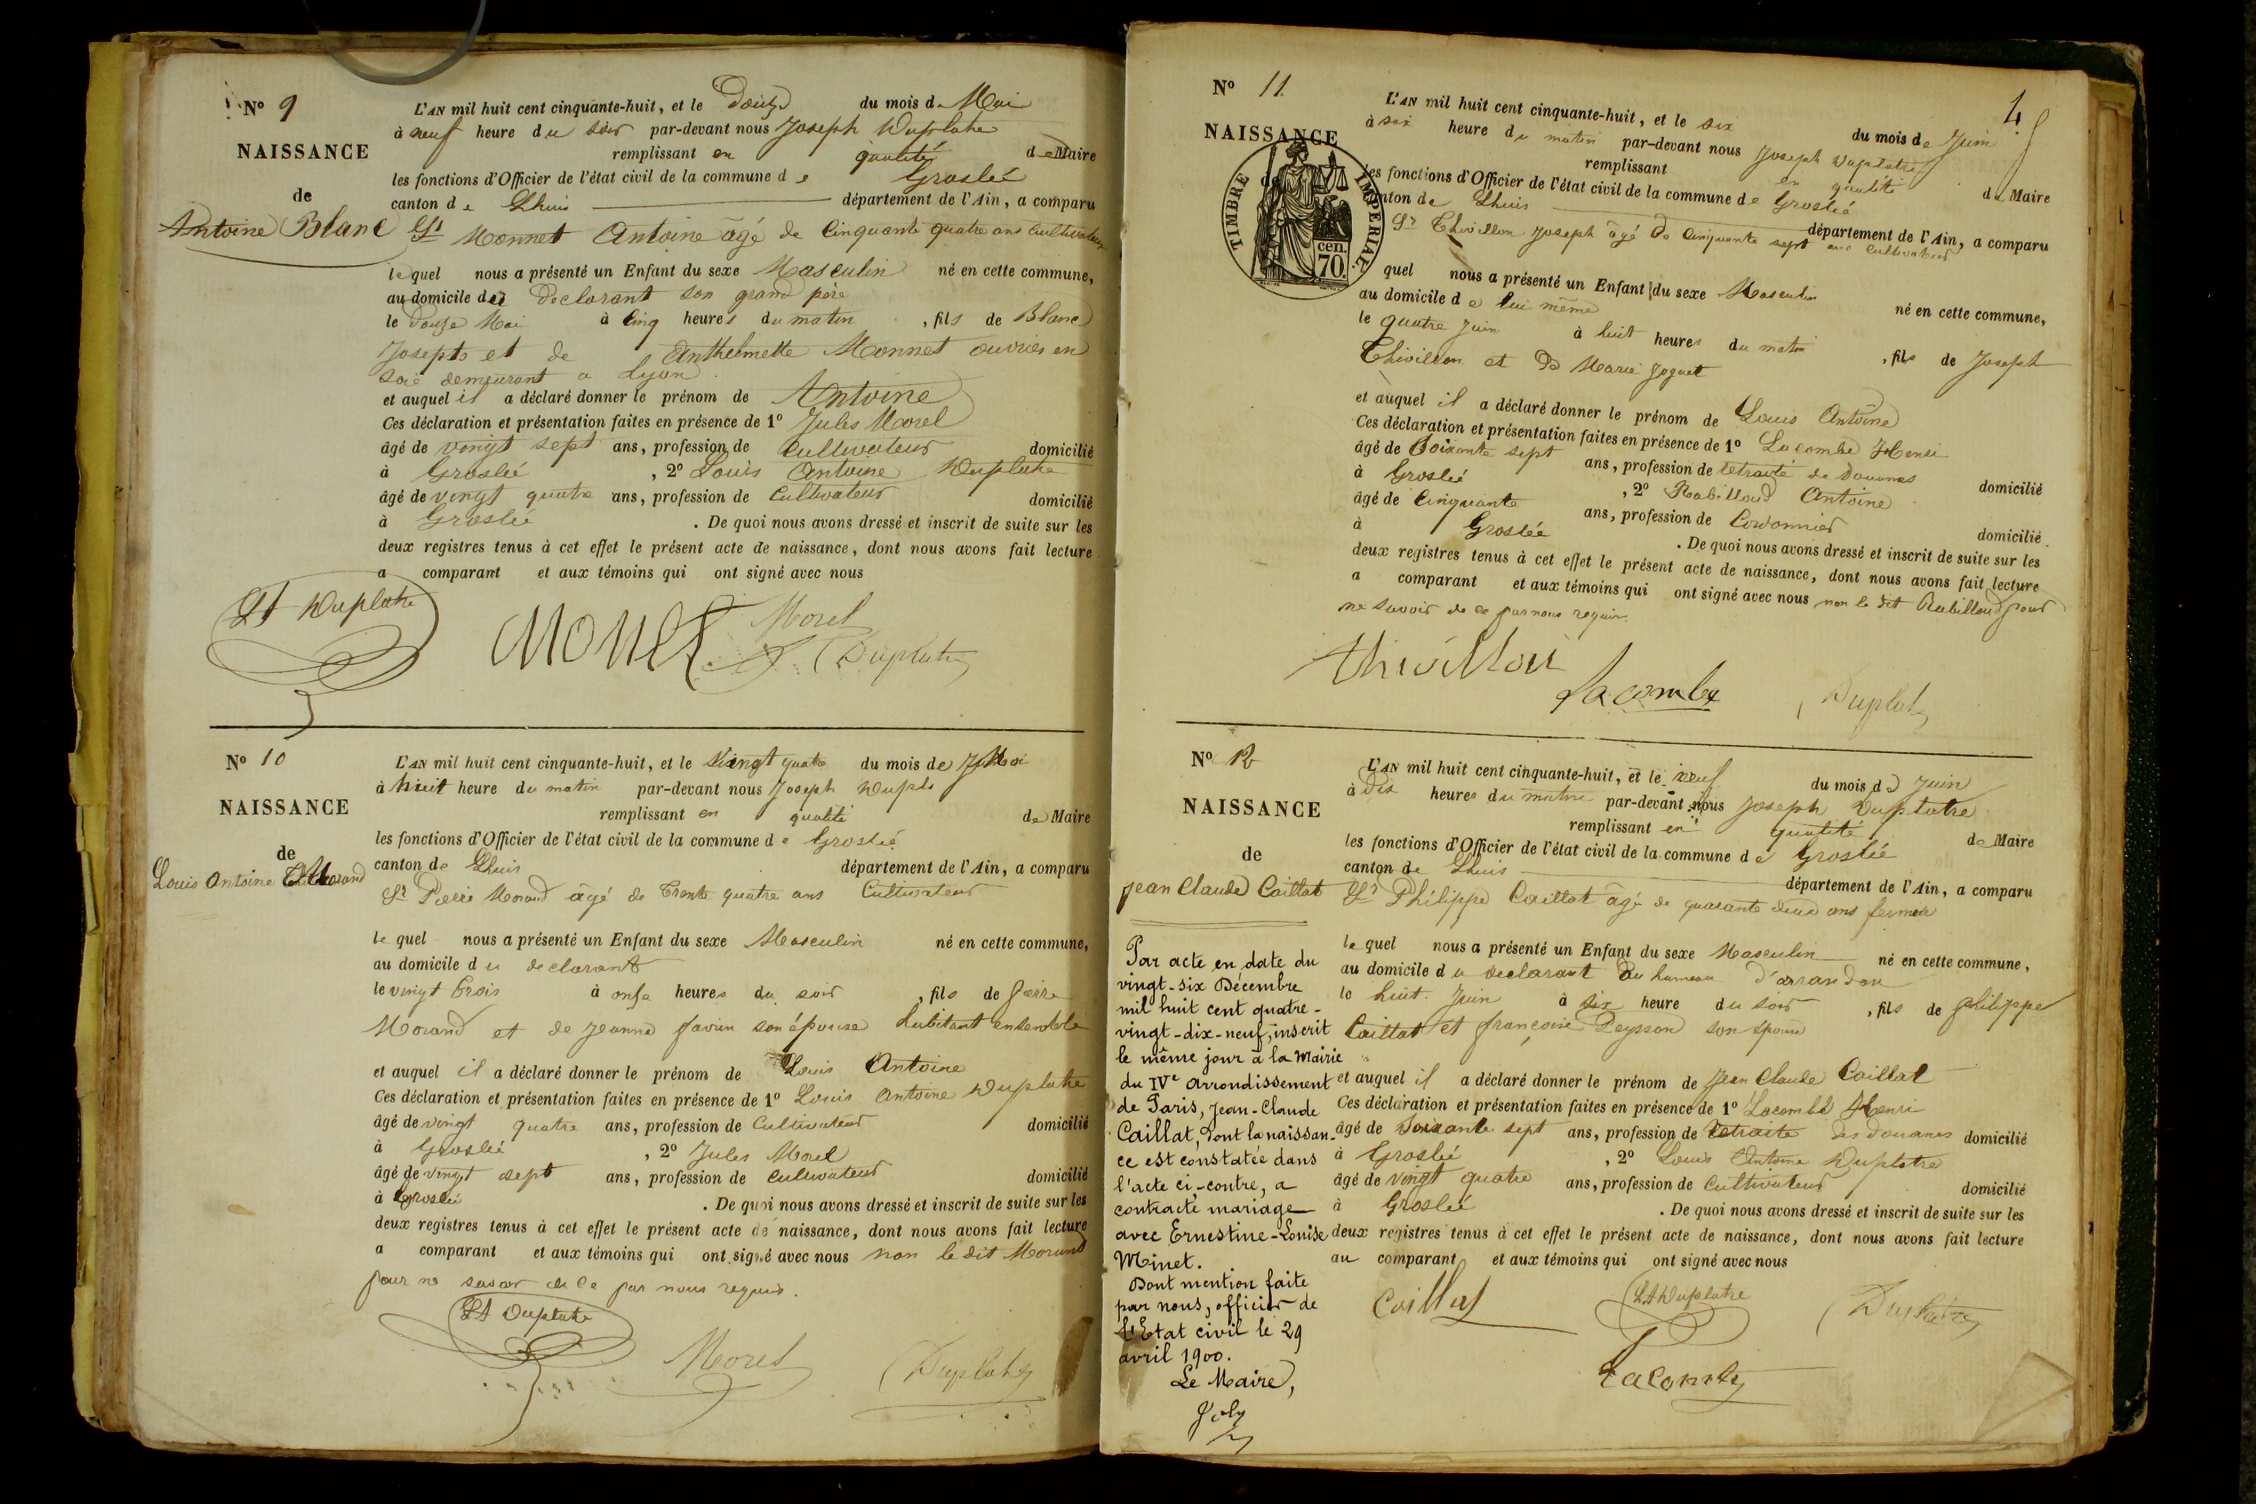 Nº 9
NAISSANCE
de
Antoine Blanc
L'AN mil huit cent cinquante-huit, et le Douze du mois de Mai
à neuf heure du soir par-devant nous Joseph Duplatre
remplissant en qualité de Maire
les fonctions d'Officier de l'état civil de la commune de Groslée
canton de Lhuis département de l'Ain, a comparu
Sr Monnet Antoine âgé de Cinquante quatre ans cultivateur
lequel nous a présenté un Enfant du sexe Masculin né en cette commune,
au domicile du Declarant son grand père
le douze Mai à Cinq heures du matin , fils de Blanc
Joseph et de Anthelmette Monnet ouvries en
soie demeurant a Lyon
et auquel il a déclaré donner le prénom de Antoine
Ces déclaration et présentation faites en présence de 1º Jules Morel
âgé de vingt sept ans, profession de Cultivateur domicilié
à Groslée , 2º Louis Antoine Duplatre
âgé de vingt quatre ans, profession de Cultivateur domicilié
à Groslée . De quoi nous avons dressé et inscrit de suite sur les
deux registres tenus à cet effet le présent acte de naissance, dont nous avons fait lecture
a comparant et aux témoins qui ont signé avec nous
LA Duplatre
Monet
Morel
Duplatre
Nº 10
NAISSANCE
de
Louis Antoine Morand
L'AN mil huit cent cinquante-huit, et le Vingt quatre du mois de Mai
à huit heure du matin par-devant nous Joseph Dupla
remplissant en qualité de Maire
les fonctions d'Officier de l'état civil de la commune de Groslée
canton de Lhuis département de l'Ain, a comparu
Sr Pierre Morand âgé de Trente quatre ans Cultivateur
le quel nous a présenté un Enfant du sexe Masculin né en cette commune,
au domicile du declarant
le vingt trois à onze heures du soir , fils de pierre
Morand et de Jeanne favier son épouse habitant ensemble
et auquel il a déclaré donner le prénom de Louis Antoine
Ces déclaration et présentation faites en présence de 1º Louis Antoine Duplatre
âgé de vingt quatre ans, profession de Cultivateur domicilié
à Groslée , 2º Jules Morel
âgé de vingt sept ans, profession de Cultivateur domicilié
à Groslée . De quoi nous avons dressé et inscrit de suite sur les
deux registres tenus à cet effet le présent acte de naissance, dont nous avons fait lecture
a comparant et aux témoins qui ont signé avec nous non le dit Morand
pour ne savoir de ce par nous requis.
LA Duplatre
Morel
Duplatre
4
Nº 11
NAISSANCE
de
TIMBRE IMPERIAL
cen. 70
L'AN mil huit cent cinquante-huit, et le six du mois de Juin
à six heure du matin par-devant nous Joseph Duplatre
remplissant en qualité de Maire
les fonctions d'Officier de l'état civil de la commune de Groslée
canton de Lhuis département de l'Ain, a comparu
Sr Thivillon Joseph âgé de Cinquante sept ans cultivateur
quel nous a présenté un Enfant du sexe Masculin né en cette commune,
au domicile de lui même
le quatre Juin à huit heures du matin , fils de Joseph
Thivillon et de Marie Joguet
et auquel il a déclaré donner le prénom de Louis Antoine
Ces déclaration et présentation faites en présence de 1º Lacombe Henri
âgé de Soixante sept ans, profession de retraité de Douanes domicilié
à Groslée , 2º Rabilloud Antoine
âgé de Cinquante ans, profession de Cordonnier domicilié
à Groslée . De quoi nous avons dressé et inscrit de suite sur les
deux registres tenus à cet effet le présent acte de naissance, dont nous avons fait lecture
a comparant et aux témoins qui ont signé avec nous non le dit Rabilloud pour
ne savoir de ce par nous requis.
thivillon
Lacombe
Duplatre
Nº 12
NAISSANCE
de
Jean Claude Caillat
L'AN mil huit cent cinquante-huit, et le neuf du mois de Juin
à Dix heures du matin par-devant nous Joseph Duplatre
remplissant en qualité de Maire
les fonctions d'Officier de l'état civil de la commune de Groslée
canton de Lhuis département de l'Ain, a comparu
Sr Philippe Caillat âgé de quarante deux ans fermier
le quel nous a présenté un Enfant du sexe Masculin né en cette commune,
au domicile du declarant au hameau d'arrandon
le huit Juin à six heure du soir , fils de philippe
Caillat et françoise Peysson son épouse
et auquel il a déclaré donner le prénom de Jean Claude Caillat
Ces déclaration et présentation faites en présence de 1º Lacombe Henri
âgé de Soixante sept ans, profession de retraite des Douanes domicilié
à Groslée , 2º Louis Antoine Duplatre
âgé de vingt quatre ans, profession de Cultivateur domicilié
à Groslée . De quoi nous avons dressé et inscrit de suite sur les
deux registres tenus à cet effet le présent acte de naissance, dont nous avons fait lecture
au comparant et aux témoins qui ont signé avec nous
Caillat
LA Duplatre
Duplatre
Lacombe
Par acte en date du
vingt-six Décembre
mil huit cent quatre-
vingt-dix-neuf, inscrit
le même jour à la Mairie
du IVe Arrondissement
de Paris, Jean-Claude
Caillat, dont la naissan-
ce est constatée dans
l'acte ci-contre, a
contracté mariage
avec Ernestine-Louise
Minet.
Dont mention faite
par nous, officier de
l'Etat civil le 29
avril 1900.
Le Maire,
Joly